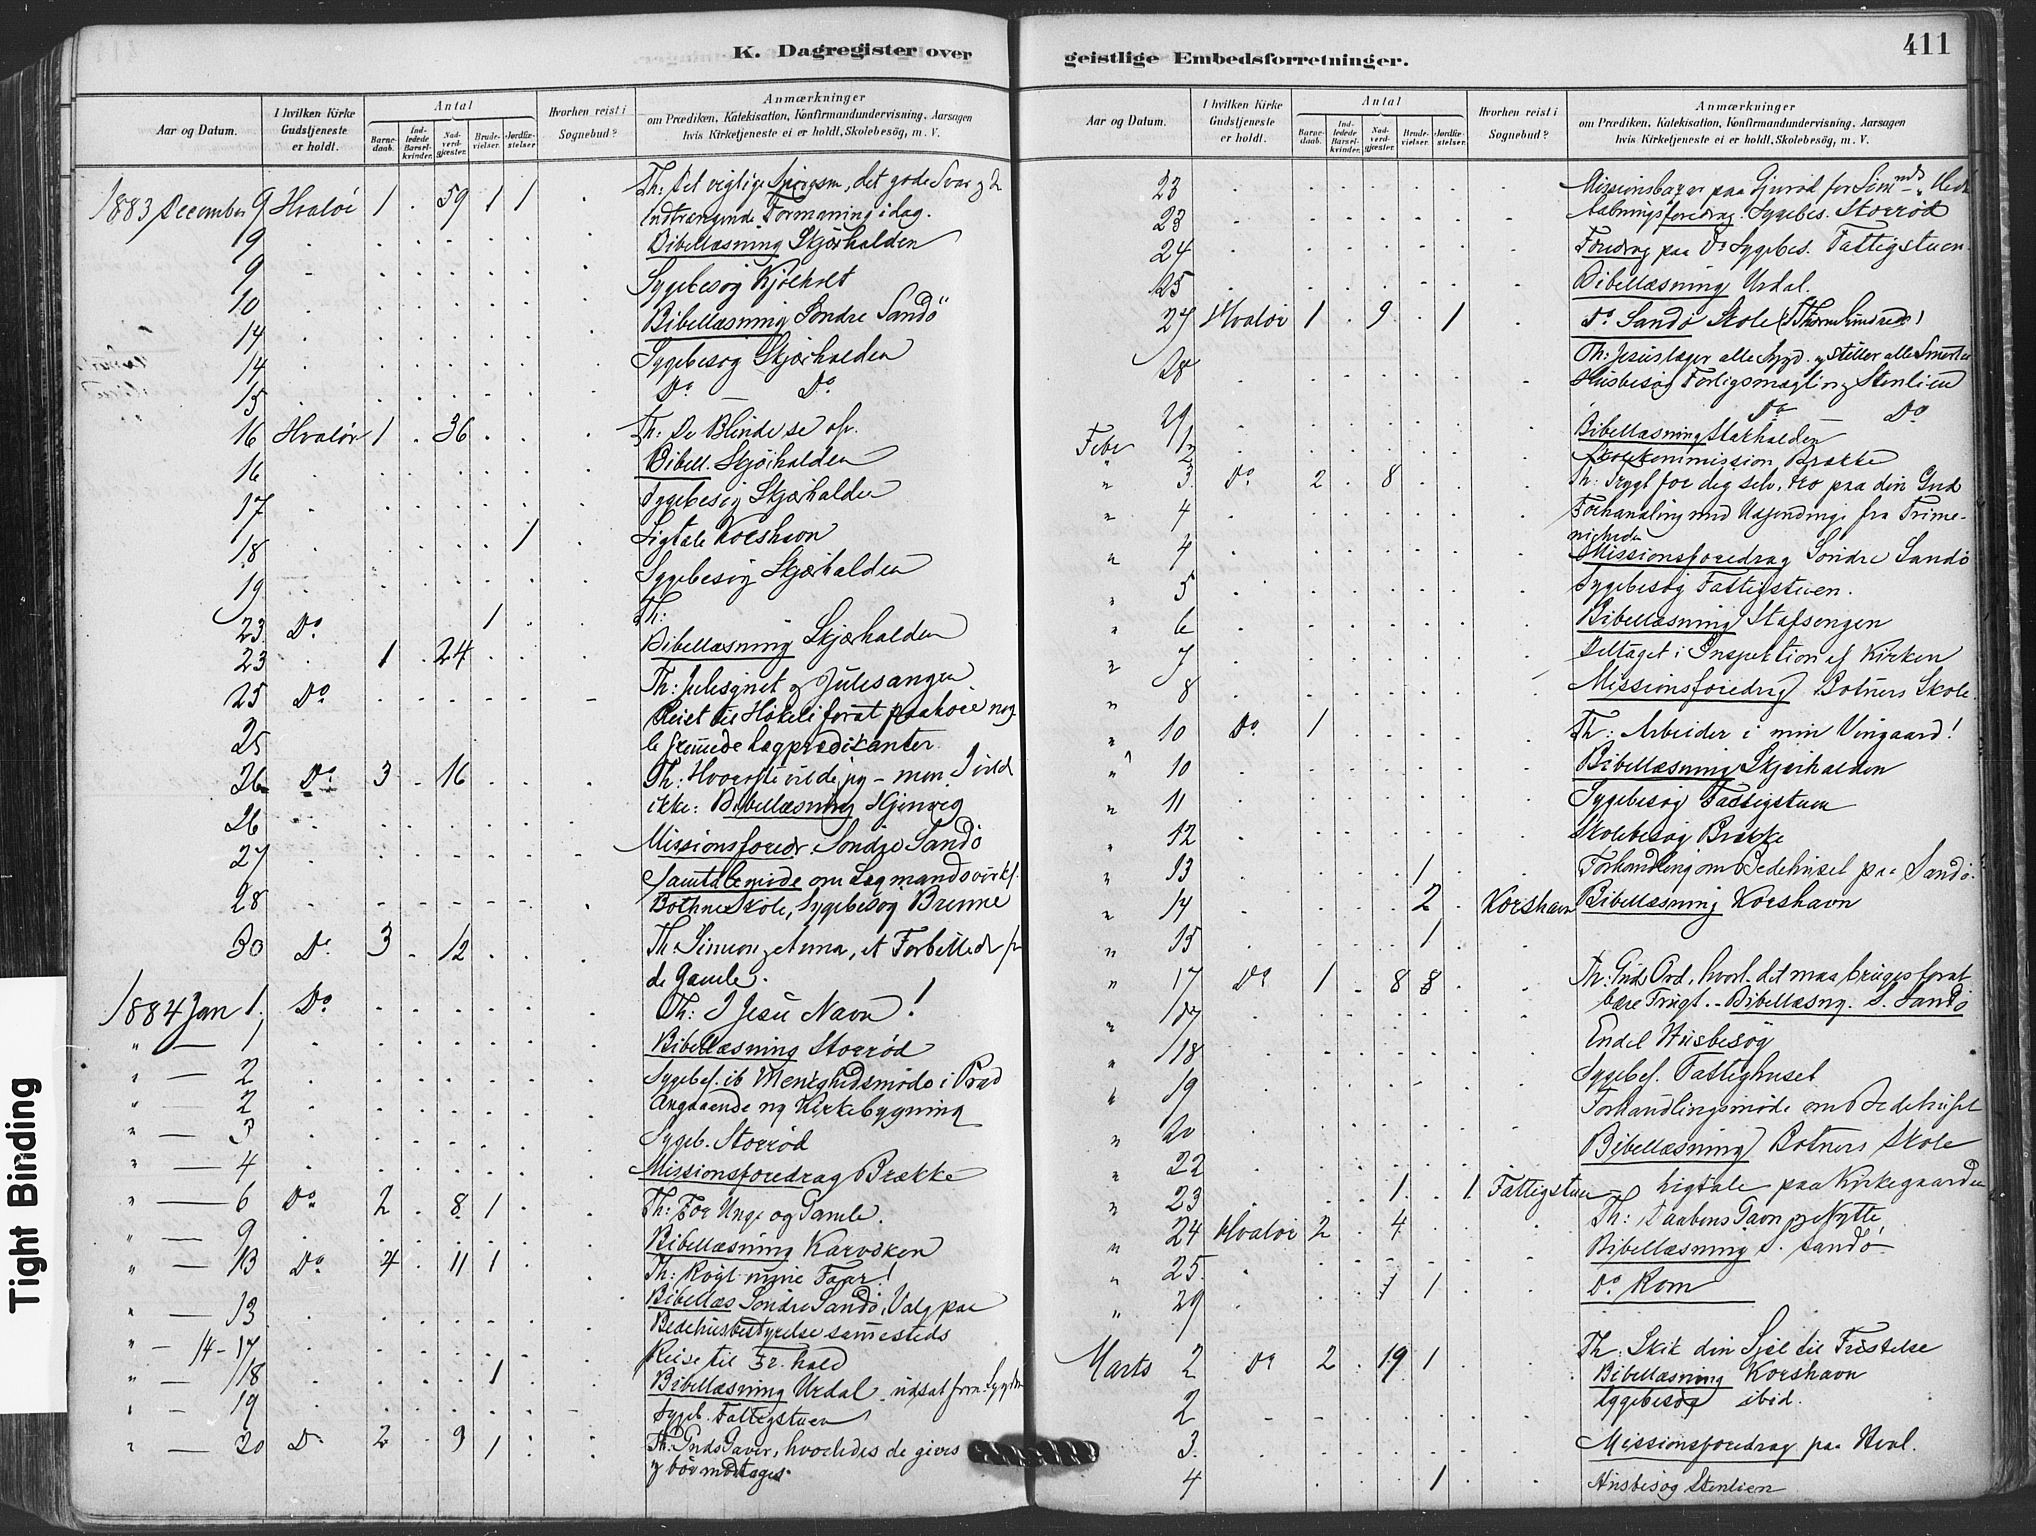 K. Dagregister over
Aar og Datum.
I hvilken Kirke Gudstjeneste er holdt.
Antal
Barne-daab.
Ind-ledede Barsel-kvinder.
Nad-verd-gjæster.
Brude-vielser.
Jordfæ-stelser
Hvorhen reist i Sognebud?
Anmærkninger
om Prædiken, Katekisation, Konfirmandundervisning, Aarsagen
hvis Kirketjeneste ei er holdt, Skolebesøg, m. V.
1883 December 9 Hvaløe 1 59 1 1 Th: Det vigtige Spørgsm, det gode Svar
Indtrængende Formaning idag.
9 Bibellæsning Skjærhalden
9 Sygebesøg Kjølholt
10 Bibellæsning Söndre Sandö
14 Sygebesøg Skjærhalden
14 Do — Do
15
16 Hvaløe 1 36 Th: De Blinde se
16 Bibell. Skjærhalden
17 Sygebesøg Skjærhalden
18 1 Ligtale Korshavn
19 Sygebesøg Skjærhalden
23 Do 1 Th:
23 1 24 Bibellæsning Skjærhalden
25 Do Th: og Julesangen
25 Reist til forat paahøre nog-
le fremmede Lægprædikanter.
26 Do 3 16 Th: Hvor ofte vilde jeg – men I vild
ikke: Bibellæsning
26 Missionsforedr. Söndre Sandö
27 Samtalemøde om Lægmandsvirks.
28 Bothne Skole, Sygebesøg Brenne
30 Do 3 12 Th: Simeon og Anna, et Forbillede for
de Gamle.
1884 Jan 1. Do Th: I Jesu Navn!
" — 1 Bibellæsning Storrød
" — 2 Sygebes. ib Menighedsmøde i Præd
" — 2 Angaaende ny Kirkebygning
" — 3 Sygeb. Storrød
" — 4 Missionsforedrag Brække
" — 6 Do 2 8 1 Th: For Unge og Gamle.
" — 9 Bibellæsning
" — 13 Do 4 11 1 Th: Røgt mine Faar!
" — 13 Bibellæs Söndre Sandö, Valg paa
Bedehusbestyrelse sammesteds
" — 14-17 Reise til Fr.hald
" — 18 1 Bibellæsning Urdal udsat
" — 19 Sygeb. Fattigstuen
" — 20 Do 2 9 1 Th: Guds Gaver, hvorledes de gives
og bør modtages.
geistlige Embedsforretninger.
411
Aar og Datum.
I hvilken Kirke Gudstjeneste er holdt.
Antal
Barne-daab.
Ind-ledede Barsel-kvinder.
Nad-verd-gjæster.
Brude-vielser.
Jordfæ-stelser
Hvorhen reist i Sognebud?
Anmærkninger
om Prædiken, Katekisation, Konfirmandundervisning, Aarsagen
hvis Kirketjeneste ei er holdt, Skolebesøg, m. V.
23 Missionsbazar paa Gjurød for
23 Aabningsforedrag. Sygebes. Storrød
24 Foredrag paa Do Sygebes. Fattigstuen
25 Bibellæsning Urdal.
27 Hvaløe 1 9 1 Do Sandö Skole
28 Th: Jesus læger alle Sygd. og stiller alle Smerter
Husbesøg Forligsmægling Stenlien
29 Do — Do
Febr 1 Bibellæsning
Skolekommission Brække
" 3 Do 2 8 Th: Frygt for dig selv, tro paa din Gud
" 4 Forhandling med Udsendinge fra Frime-
nigheden
" 4 Missionsforedrag Söndre Sandö
" 5 Sygebesøg Fattigstuen.
" 6 Bibellæsning Stafsengen
" 7 Deltaget i Inspektion af Kirken
" 8 Missionsforedrag Botners Skole.
" 10 Do 1 Th: Arbeider i min Vingaard!
" 10 Bibellæsning Skjærhalden
" 11 Sygebesøg Fattigstuen
" 12 Skolebesøg Brække
" 13 1 Forhandling om Bedehuset paa Sandö.
" 14 2 Korshavn Bibellæsning Korshavn
" 15 1
" 17 Do 1 8 8 Th: Guds Ord, hvorl. det maa bruges forat
bære Frugt. - Bibellæsng. S. Sandö
" 17 Endel Husbesøg
" 18 Sygebes. Fattighuset
" 19 Forhandlingsmøde om Bedehuset
" 20 Bibellæsning Botners Skole
" 22
" 23 1 1 Fattigstuen Ligtale paa Kirkegaarden
" 24 Hvaløe 2 4 Th: Daabens Gavn og Nytte.
" 25. Bibellæsning S. Sandö
" 29 1 1 Do Rom
Marts 2 Do 2 19 1 Th: Skik din Sjæl til Fristelse
2 Bibellæsning Korshavn
Sygebesøg ibid.
3. Missionsforedrag paa
4 1 Husbesøg Stenlien
Tight Binding